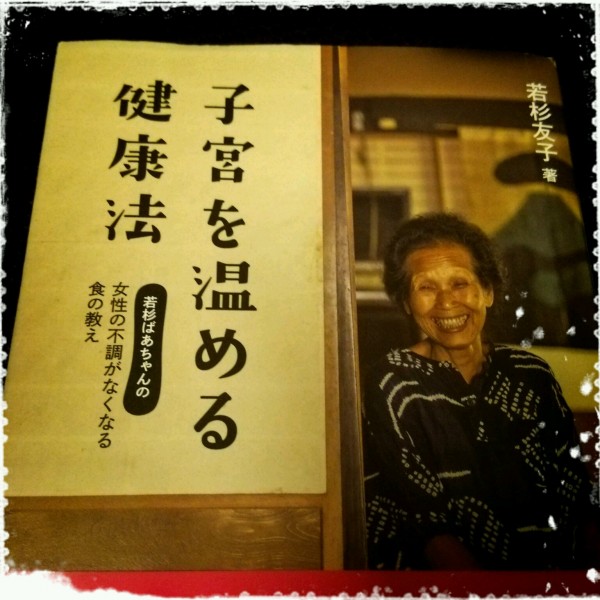 子宮を温める
健康法
若杉ばあちゃんの
女性の不調がなくなる
食の教え
若杉友子 著